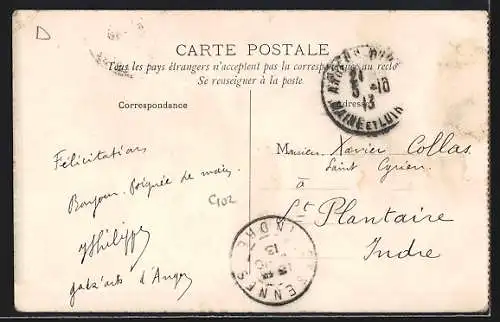 D
CARTE POSTALE
Tous les pays étrangers n'acceptent pas la correspondance au recto
Se renseigner à la poste.
Correspondance
Adresse
21
5 -10
13
MAINE ET LOIRE
Félicitations
Bonjour. Poignée de main.
Philippe
gadz'arts d'Angers
C102
Monsieur Xavier Collas
Saint Cyrien
à
St Plantaire
Indre
INDRE
13